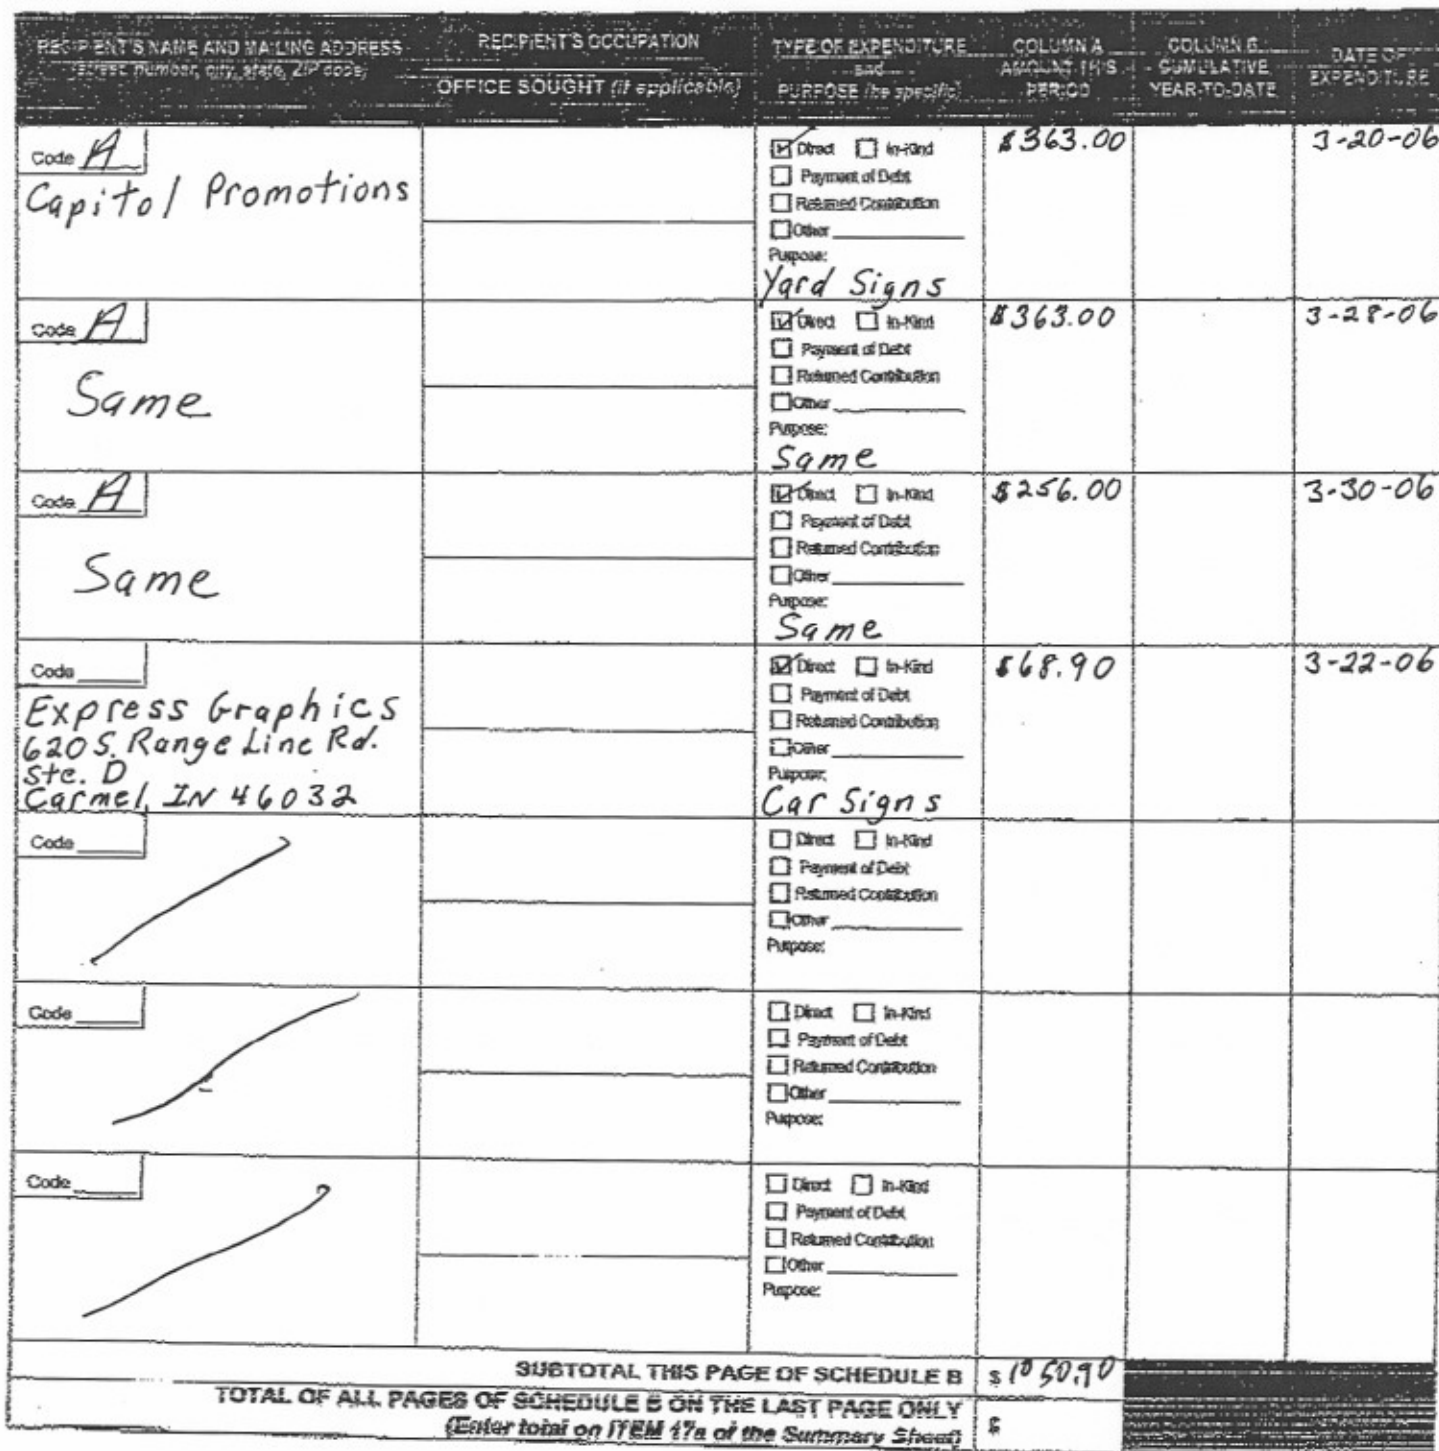 RECIPIENT'S NAME AND MAILING ADDRESS
(street, number, city, state, ZIP code)
RECIPIENT'S OCCUPATION
OFFICE SOUGHT (if applicable)
TYPE OF EXPENDITURE
and
PURPOSE (be specific)
COLUMN A
AMOUNT THIS
PERIOD
COLUMN B
CUMULATIVE
YEAR-TO-DATE
DATE OF
EXPENDITURE
Code A
Capitol Promotions
Direct In-Kind
Payment of Debt
Returned Contribution
Other
Purpose:
Yard Signs
$363.00
3-20-06
Code A
Same
Direct In-Kind
Payment of Debt
Returned Contribution
Other
Purpose:
Same
$363.00
3-28-06
Code A
Same
Direct In-Kind
Payment of Debt
Returned Contribution
Other
Purpose:
Same
$256.00
3-30-06
Code
Express Graphics
620 S. Range Line Rd.
Ste. D
Carmel, IN 46032
Direct In-Kind
Payment of Debt
Returned Contribution
Other
Purpose:
Car Signs
$68.90
3-22-06
Code
Direct In-Kind
Payment of Debt
Returned Contribution
Other
Purpose:
Code
Direct In-Kind
Payment of Debt
Returned Contribution
Other
Purpose:
Code
Direct In-Kind
Payment of Debt
Returned Contribution
Other
Purpose:
SUBTOTAL THIS PAGE OF SCHEDULE B $1050.90
TOTAL OF ALL PAGES OF SCHEDULE B ON THE LAST PAGE ONLY
(Enter total on ITEM 17a of the Summary Sheet) $